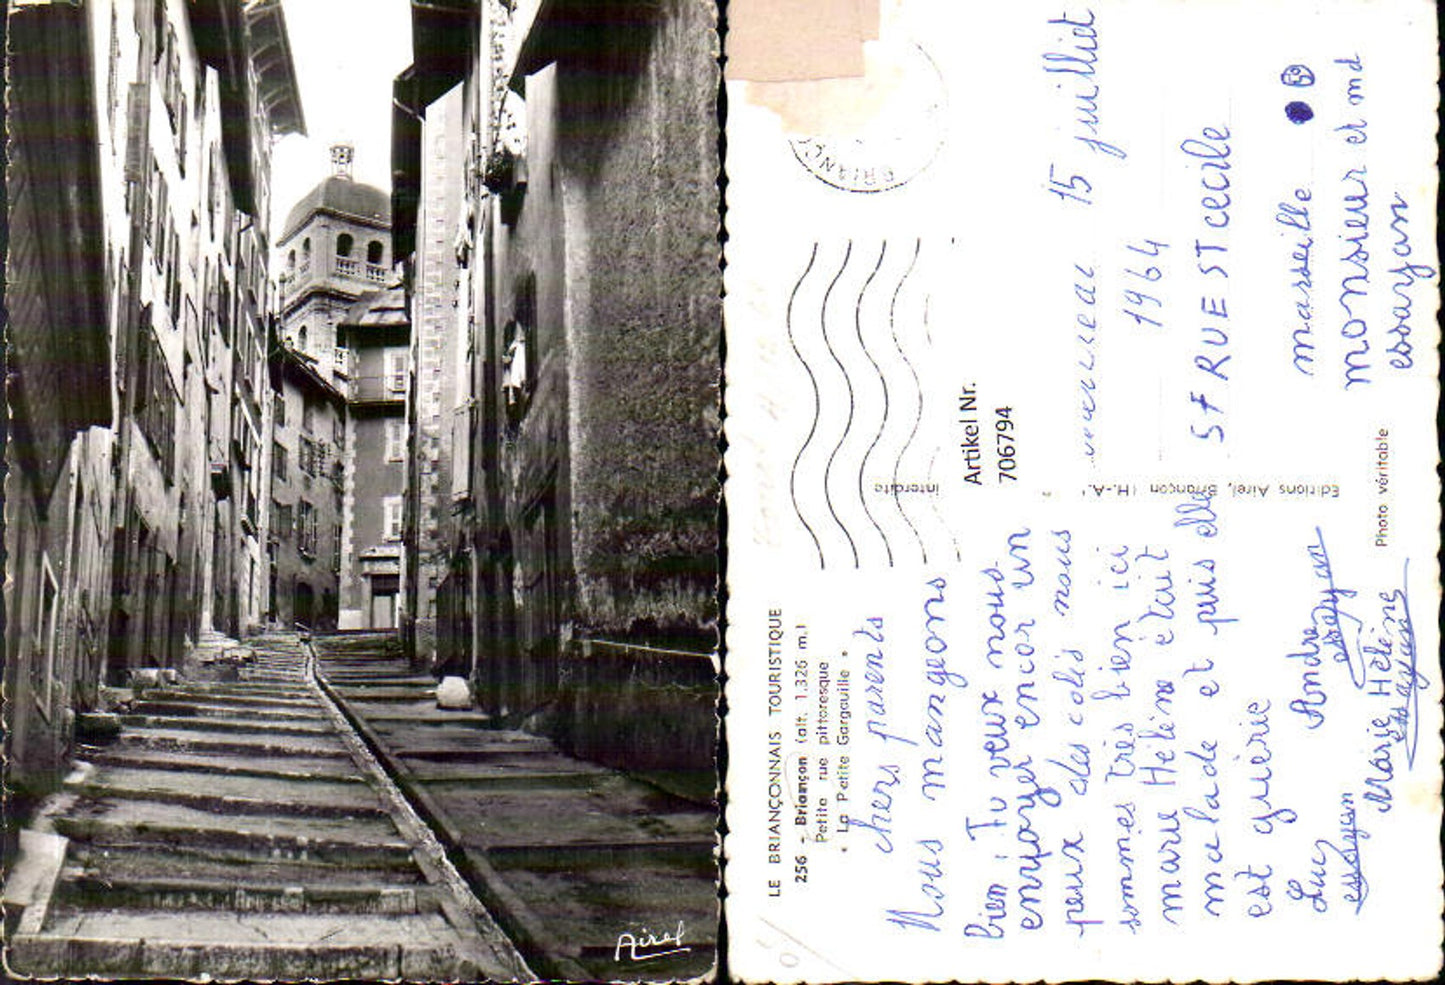 Airel
LE BRIANÇONNAIS TOURISTIQUE
256 - Briançon (alt. 1.326 m.)
Petite rue pittoresque
« La Petite Gargouille »
chers parents
Nous mangeons
bien : Tu veux nous
envoyer encor un
peux des colis nous
sommes très bien ici
marie Hélène était
malade et puis elle
est guérie
Luc
essayan
Andre
essayan
Marie Hélène
essayan
BRIANÇ
interdite
Artikel Nr.
706794
Editions Airel, Briançon (H.-A.
Photo véritable
15 juilliet
1964
57 RUE ST cecile
marseille
monsieur et md
essayan